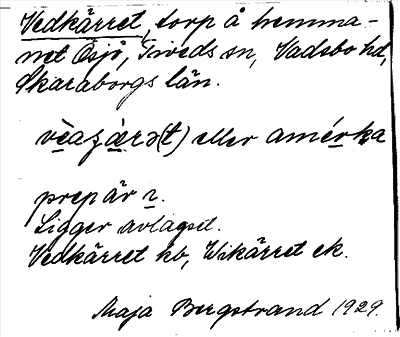 Vedkärret, torp å hemma-
net Ösjö, Tiveds sn, Vadsbo hd,
Skaraborgs län.
vèaʒärə(t) eller amérka
prep är 2.
Ligger avlägset.
Vedkärret kb, Wikärret ek.
Maja Bergstrand 1929.